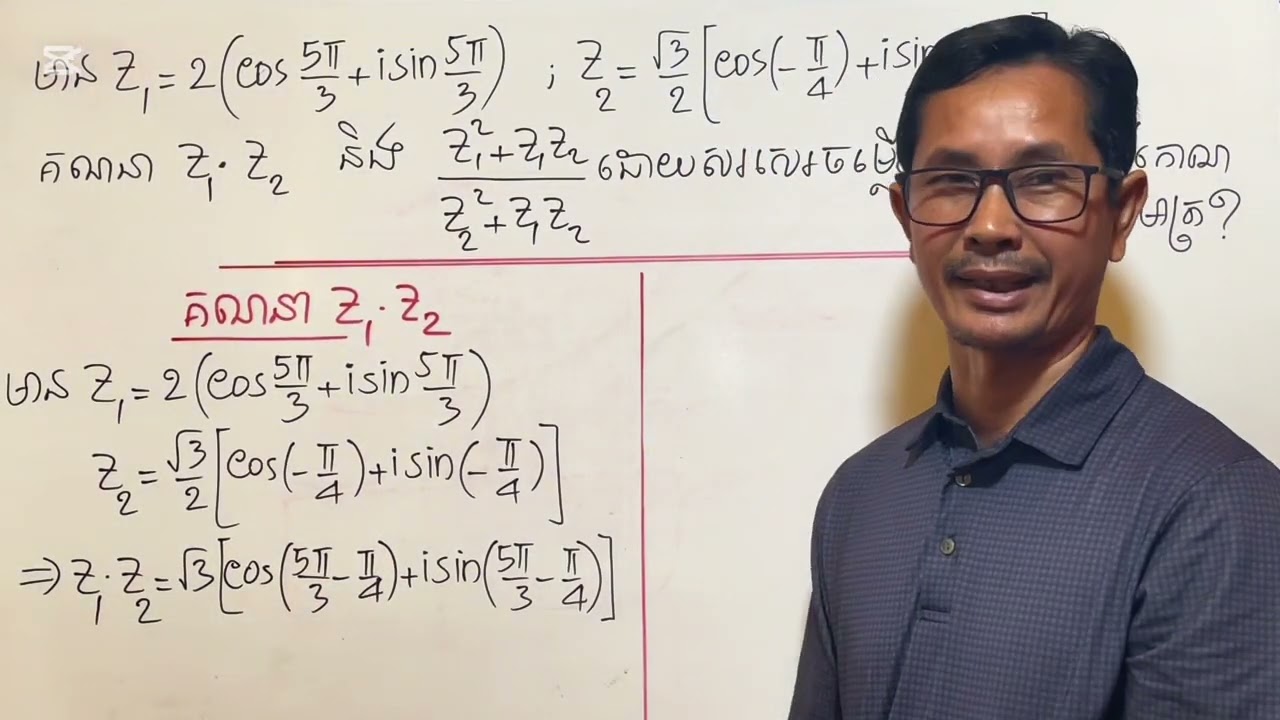 មាន Z₁ = 2 (cos 5π/3 + isin 5π/3) ; Z₂ = √3/2 [cos(-π/4) + isin
គណនា Z₁ · Z₂ និង (Z₁² + Z₁Z₂)/(Z₂² + Z₁Z₂) ដោយសរសេរចម្លើ កោណ
មាត្រ?
គណនា Z₁ · Z₂
មាន Z₁ = 2 (cos 5π/3 + isin 5π/3)
Z₂ = √3/2 [cos(-π/4) + isin(-π/4)]
⇒ Z₁ · Z₂ = √3 [cos(5π/3 - π/4) + isin(5π/3 - π/4)]